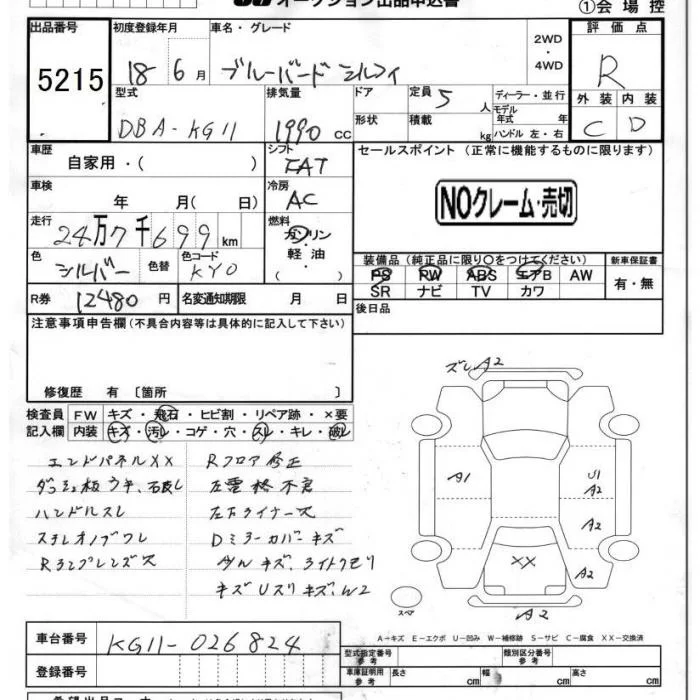 オークション出品申込書
①会場控
出品番号 初度登録年月 車名・グレード 評価点
5215 18年 6月 ブルーバード シルフィ 2WD・4WD R
型式 排気量 ドア 定員 5人 ディーラー・並行 外装 内装
DBA-KG11 1990cc 形状 積載 kg モデル年式 年 ハンドル 左・右 C D
車歴 シフト セールスポイント (正常に機能するものに限ります)
自家用・( ) FAT
車検 冷房
年 月( 日) AC NOクレーム・売切
走行 燃料
24万7千699km ガソリン・軽油・( )
色 色替 色コード 装備品 (純正品に限り○をつけてください) 新車保証書
シルバー KY0 PS PW ABS エアB AW 有・無
SR ナビ TV カワ
R券 12480円 名変通知期限 月 日
後日品
注意事項申告欄(不具合内容等は具体的に記入して下さい)
修復歴 有〔箇所 〕
ズレ A2
検査員 FW キズ・飛石・ヒビ割・リペア跡・×要
記入欄 内装 キズ・汚レ・コゲ・穴・スレ・キレ・破レ
エンドパネルXX Rフロア修正
A1 U1 A2
ハンドルスレ
A2
Dミラーカバーキズ
XX A2
A2
スペア
A→キズ E→エクボ U→凹み W→補修跡 S→サビ C→腐食 XX→交換済
車台番号 KG11-026824
登録番号
型式指定番号 参考 類別区分番号 参考
車庫証明用 参考 長さ cm 幅 cm 高さ cm